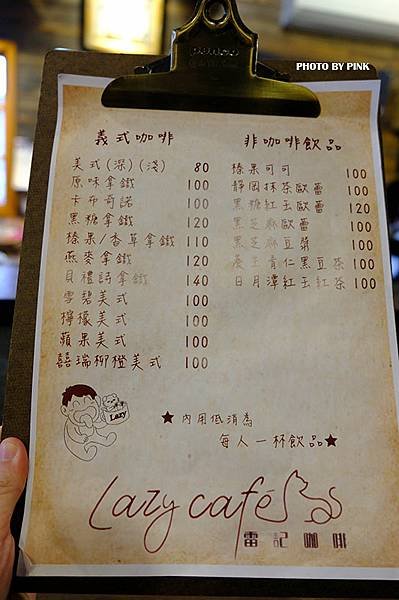 PHOTO BY PINK
義式咖啡
美式(深)(淺) 80
原味拿鐵 100
卡布奇諾 100
黑糖拿鐵 120
榛果/香草拿鐵 110
燕麥拿鐵 120
貝禮詩拿鐵 140
雪碧美式 100
檸檬美式 100
蘋果美式 100
囍瑞柳橙美式 100
非咖啡飲品
榛果可可 100
靜岡抹茶歐蕾 100
黑糖紅玉歐蕾 120
黑芝麻歐蕾 100
黑芝麻豆漿 100
養生青仁黑豆茶 100
日月潭紅玉紅茶 100
Lazy
★內用低消為
每人一杯飲品★
Lazy café
雷記咖啡